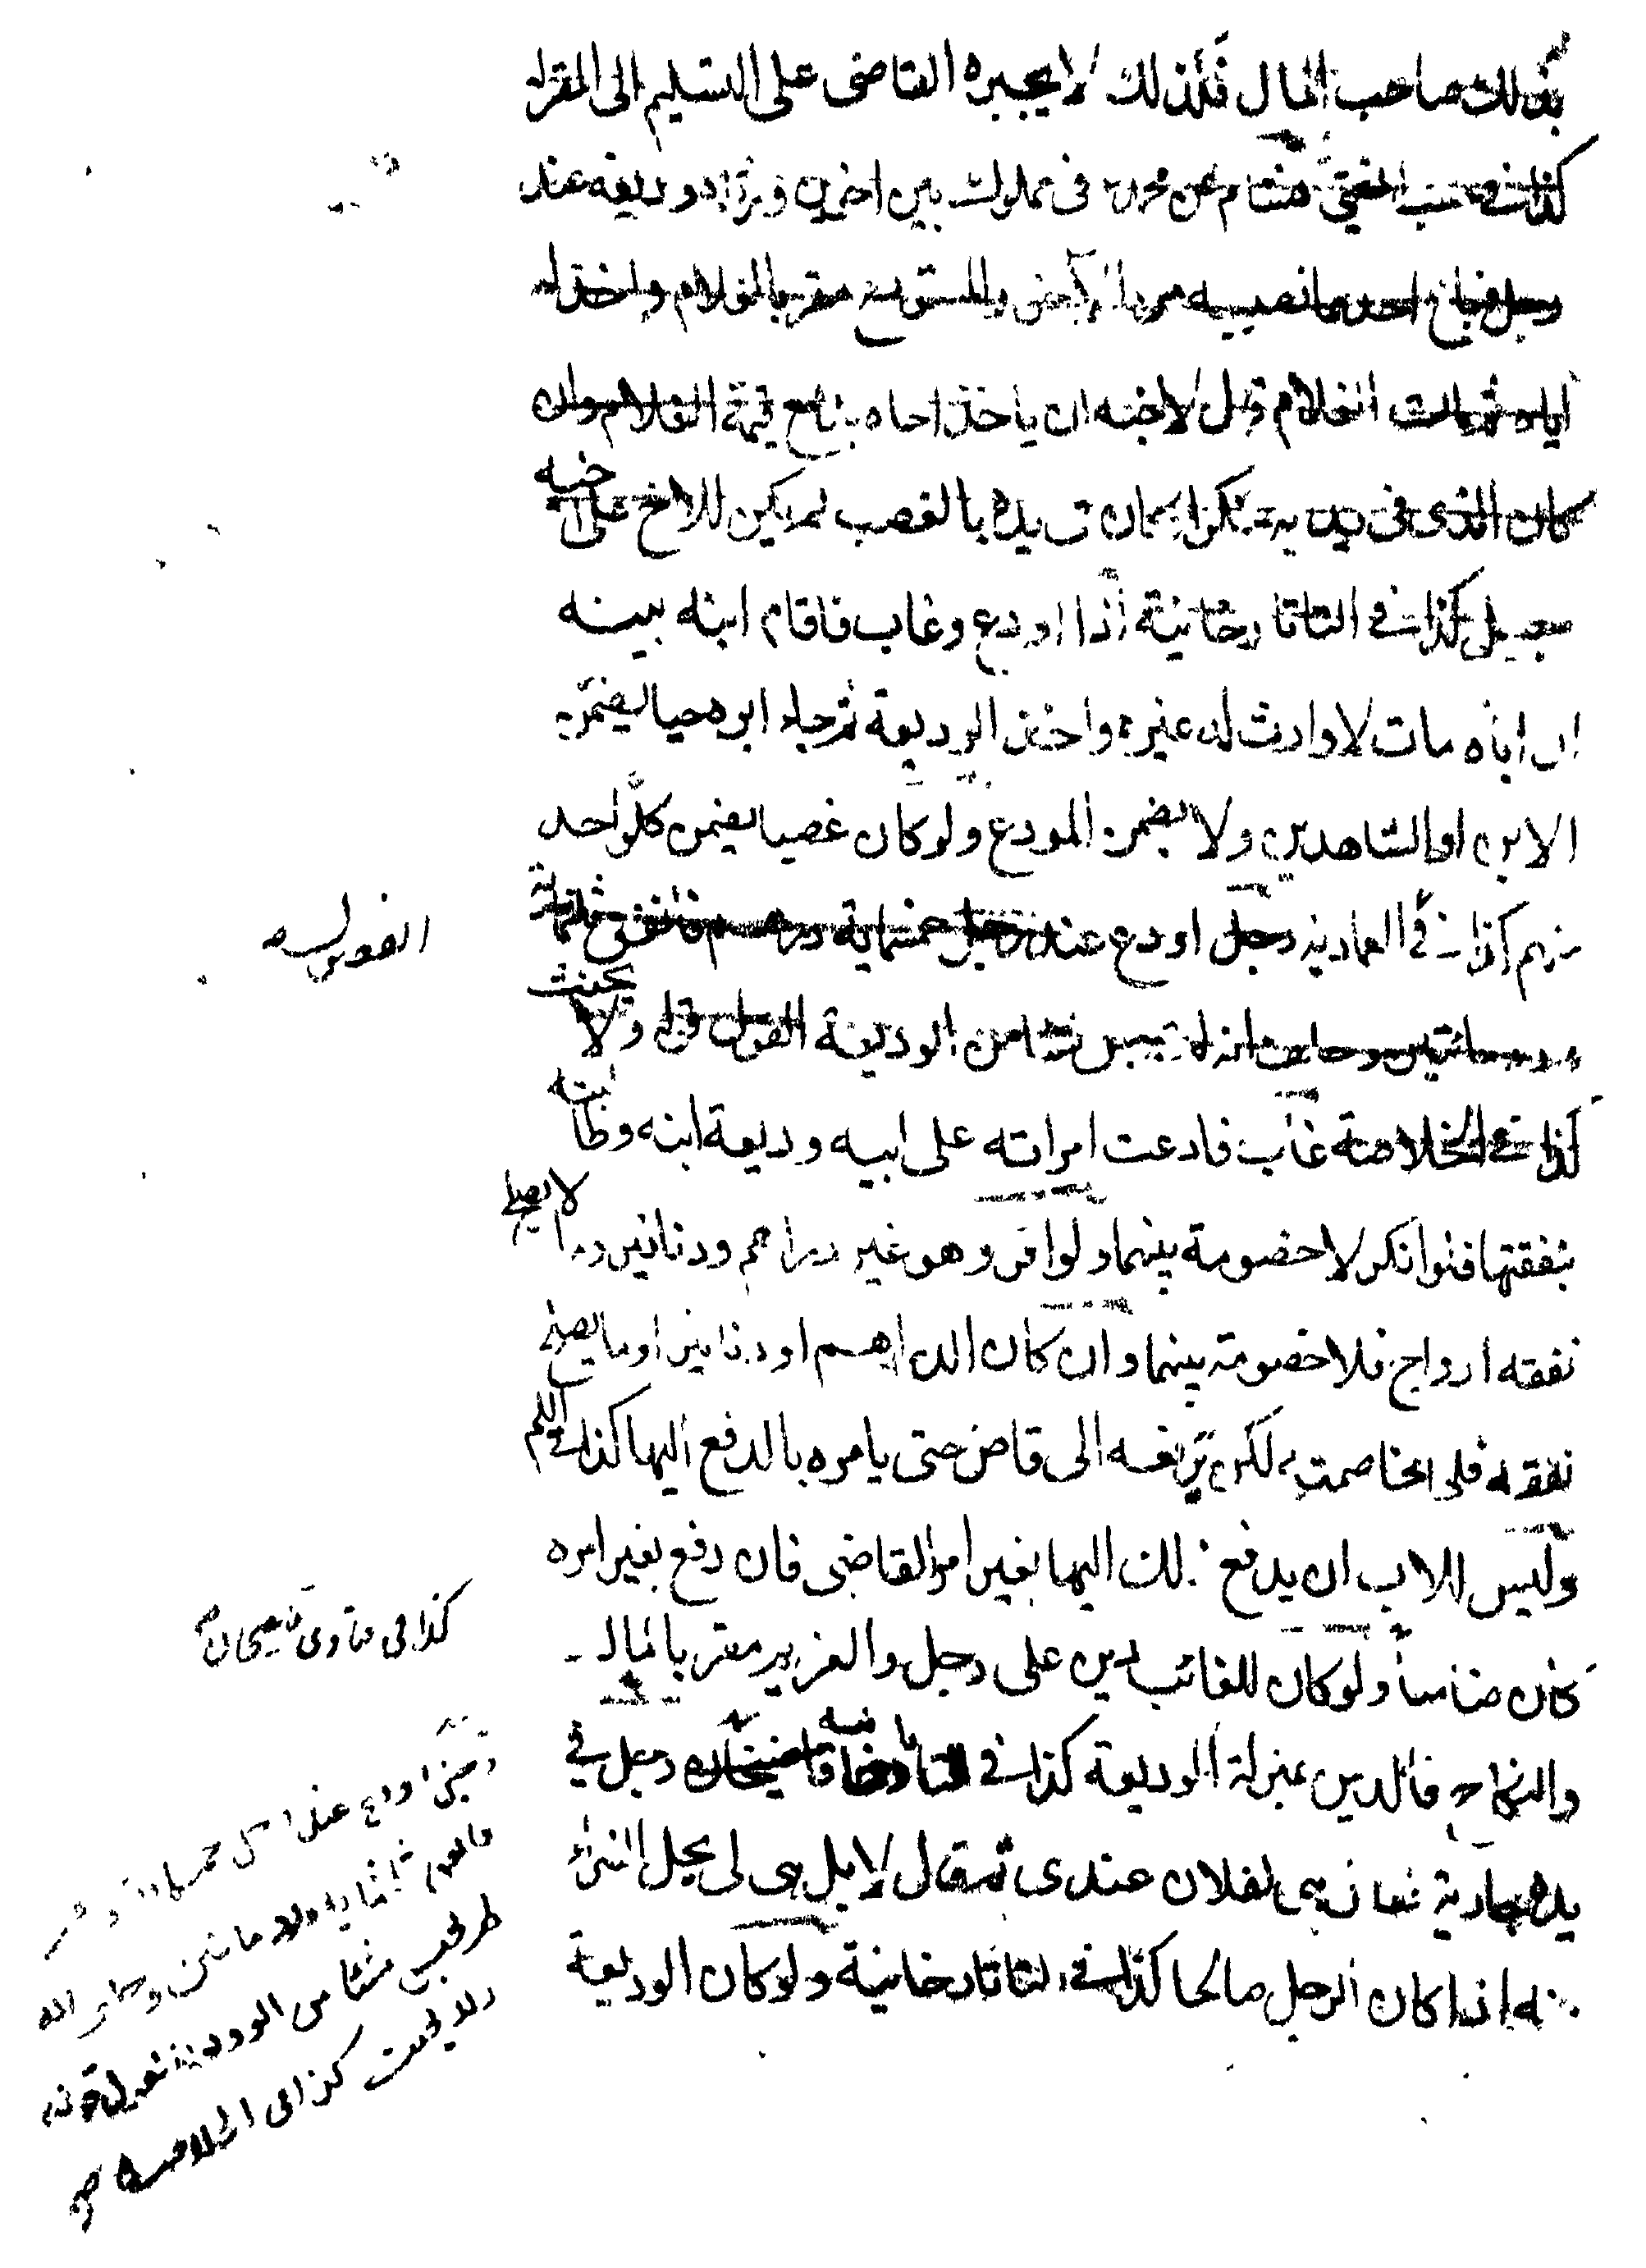 بذلك صاحب المال فلذلك لا يجبره القاضى على التسليم الى المقرله
كذا فى هشام عن محمد فى مملوك بين اخوين وديعة عند
رجل فباع احدهما نصيبه من والمستودع مقر بالغلام واخذ له
اياه ثم مات الغلام قبل لاخيه ان ياخذ اخاه قيمة الغلام وان
كان الذى فى يديه بالغصب لم يكن للاخ على اخيه
سبيل كذا فى التاتارخانية اذا اودع وغاب فاقام ابنه بينه
ان اباه مات لا وارث له غيره واخذ الوديعة ثم جاء ابوه حيا يضمن
الابن او الشاهدين ولا يضمن المودع ولو كان غصبا يضمن كل واحد
منهم كذا فى العمادية رجل اودع عند رجل خمسماية درهم فانفق ثلثمائة
ورد مائتين وحلف انه لم يحبس شيئا من الوديعة القول قوله ولا يحنث
كذا فى الخلاصة غاب فادعت امراته على ابيه وديعة ابنه وطالبته
بنفقتها فلو انكر لا خصومة بينهما ولو اقر وهو غير دراهم ودنانير لا يصلح
نفقه ازواج فلا خصومة بينهما وان كان الدراهم او دنانير او ما يصلح
نفقه فلها مخاصمته لكن ترفعه الى قاض حتى يامره بالدفع اليها كذا فى
وليس للاب ان يدفع ذلك اليها بغير امر القاضى فان دفع بغير امره
كان ضامنا ولو كان للغائب دين على رجل والغريم مقر بالمال
والنكاح فالدين بمنزلة الوديعة كذا فى التاتارخانيه قاضيخان رجل فى
يده جارية فقال هى لفلان عندى ثم قال لا بل هى لى يحل الشراء
منه اذا كان الرجل صالحا كذا فى التاتارخانية ولو كان الوديعة
القول له
كذا فى فتاوى قاضيخان
اودع عند رجل خمسمائة
ثلثمائة ورد مائتين وحلف انه
لم يحبس شيئا من الوديعة القول قوله
ولا يحنث كذا فى الخلاصة